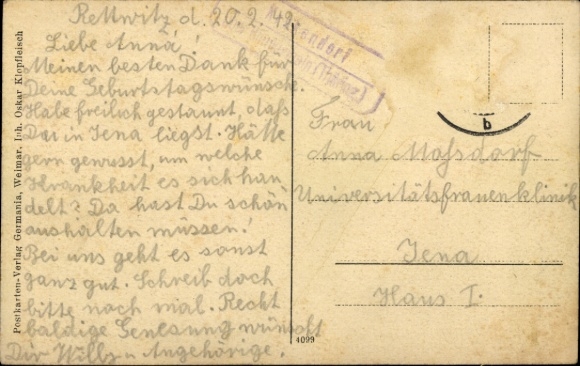 Rettwitz d. 20.2.42.
Liebe Anna!
Meinen besten Dank für
Deine Geburtstagswünsche.
Habe freilich gestaunt, daß
Du in Jena liegst. Hätte
gern gewusst, um welche
Krankheit es sich han
delt? Da hast Du schön
aushalten müssen!
Bei uns geht es sonst
ganz gut. Schreib doch
bitte noch mal. Recht
baldige Genesung wünscht
Dir Willy u Angehörige.
Postkarten-Verlag Germania, Weimar, Inh. Oskar Klopfleisch
(Thür.)
b
Frau
Anna Moßdorf
Universitätsfrauenklinik
Jena
Haus I.
4099